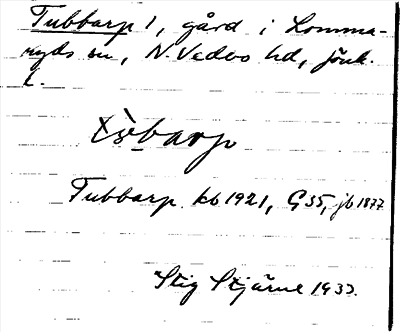 Tubbarp 1, gård i Lomma-
ryds sn, N. Vedbo hd, Jönk.
l.
barp
Tubbarp kb 1921, G35, jb 1877
Stig Stjärne 1933.